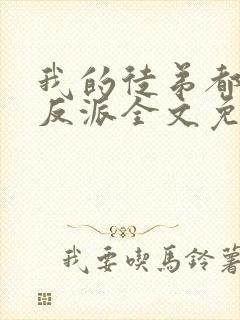 我的徒弟都
反派全文免
我要喫馬鈴薯